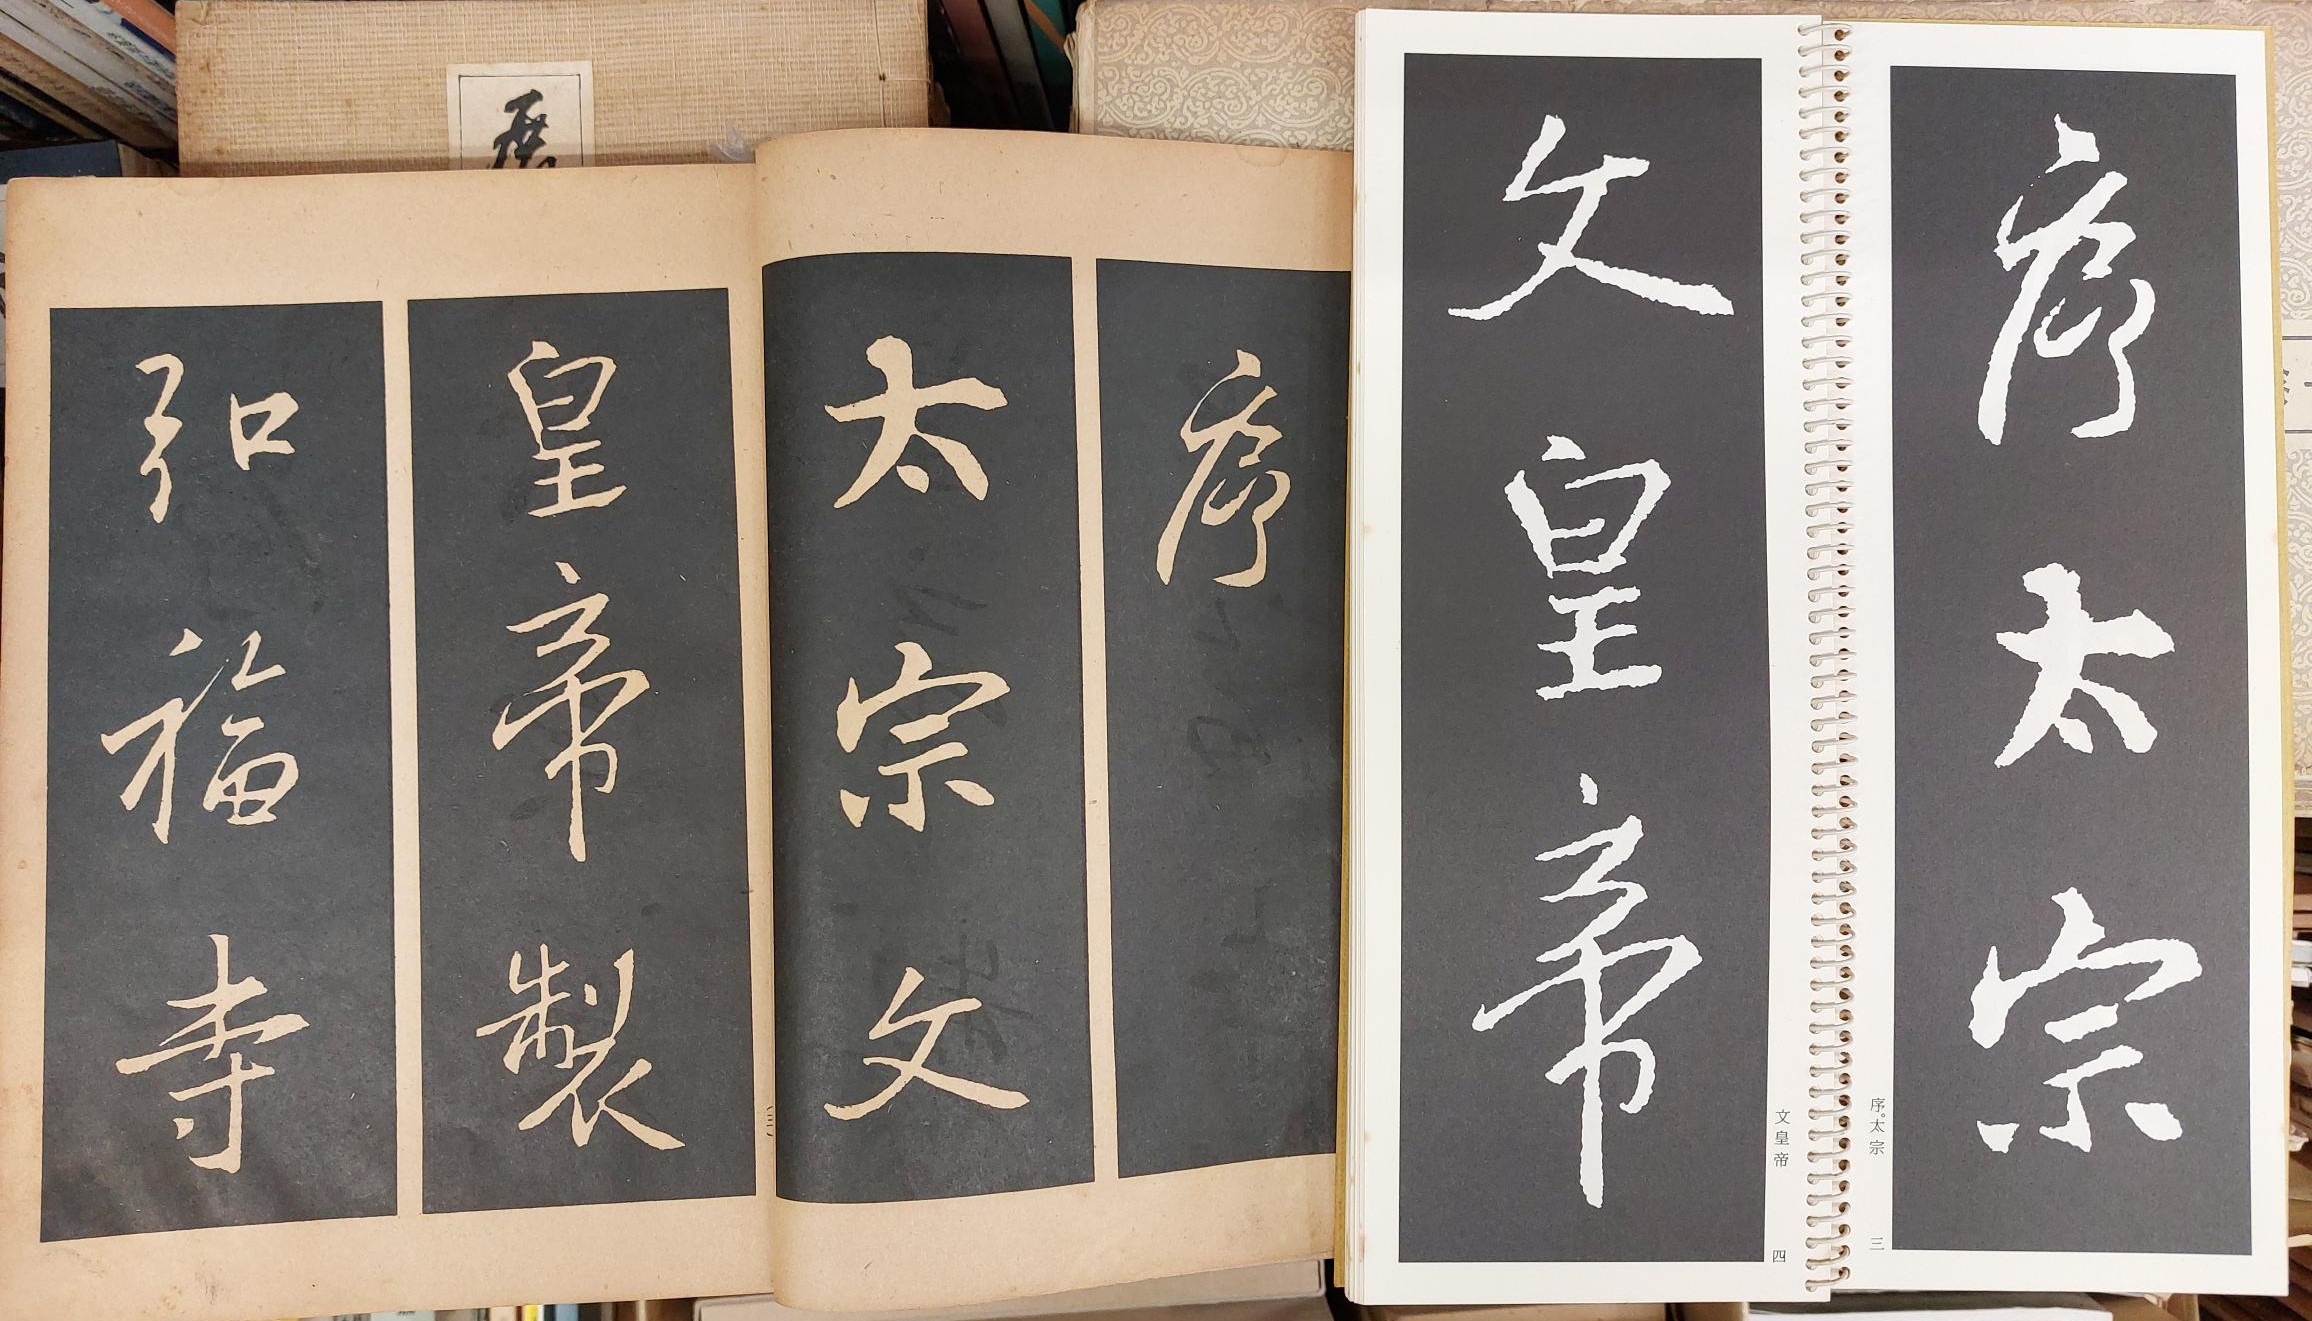 序
太宗文
皇帝製
弘福寺
序太宗
文皇帝
序。太宗
三
文皇帝
四